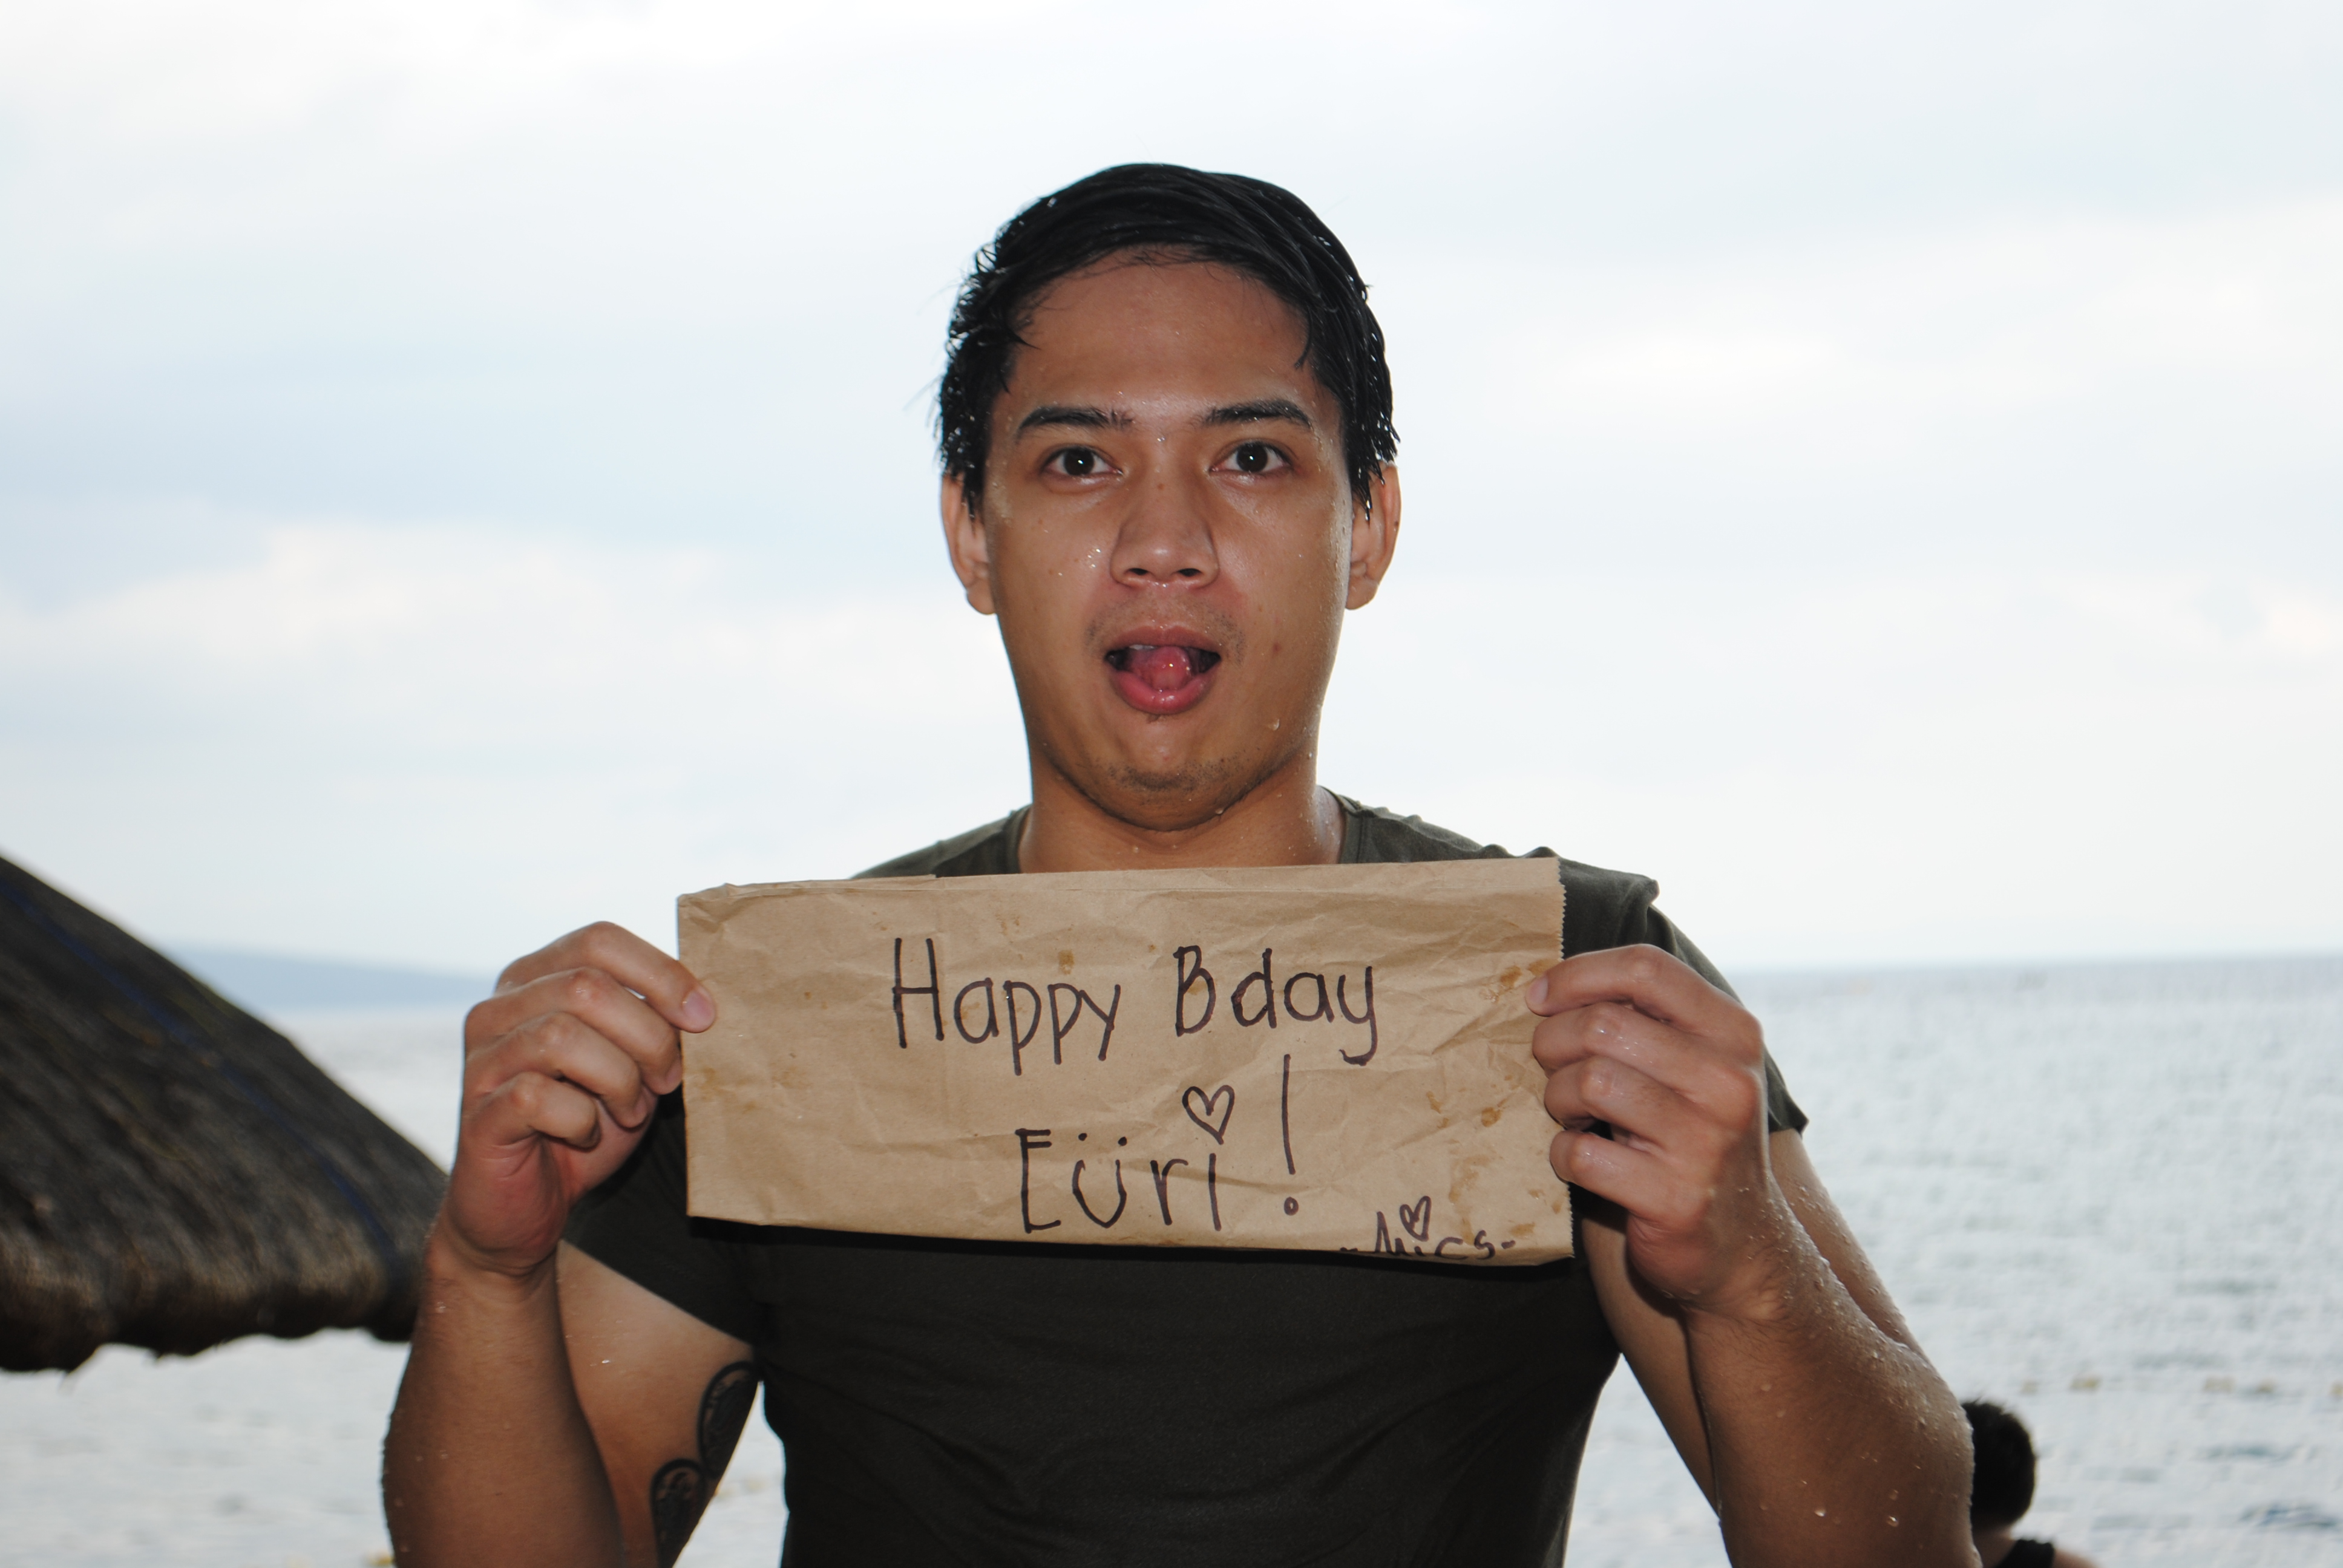 Happy Bday
Eüri!
-Mics-